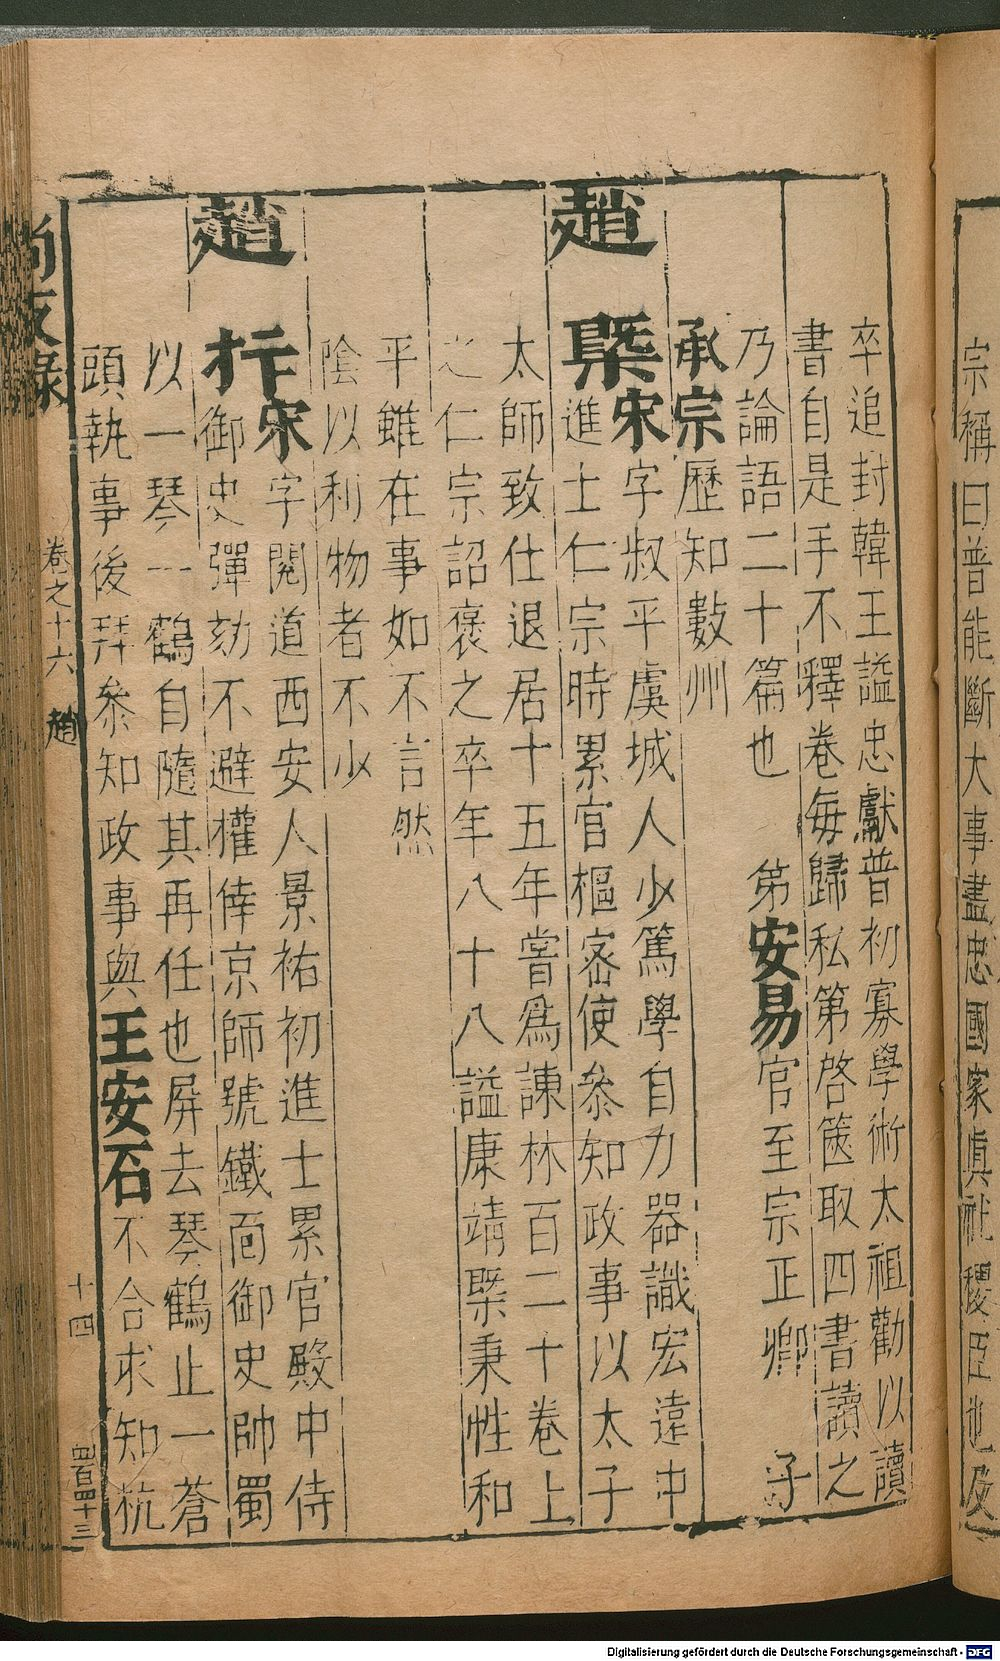 宗稱曰普能斷大事盡忠國家眞社稷臣也及
卒追封韓王謚忠獻普初寡學術太祖勸以讀
書自是手不釋卷每歸私第啓篋取四書讀之
乃論語二十篇也 第安易官至宗正卿 子
承宗歷知數州
趙槩宋字叔平虞城人少篤學自力器識宏遠中
進士仁宗時累官樞密使參知政事以太子
太師致仕退居十五年嘗爲諌林百二十卷上
之仁宗詔褒之卒年八十八謚康靖槩秉性和
平雖在事如不言然
陰以利物者不少
趙抃宋字閱道西安人景祐初進士累官殿中侍
御史彈劾不避權倖京師號鐵面御史帥蜀
以一琴一鶴自隨其再任也屏去琴鶴止一蒼
頭執事後拜參知政事與王安石不合求知杭
尚友錄 卷之十六 趙 十四 四百四十三
Digitalisierung gefördert durch die Deutsche Forschungsgemeinschaft - DFG